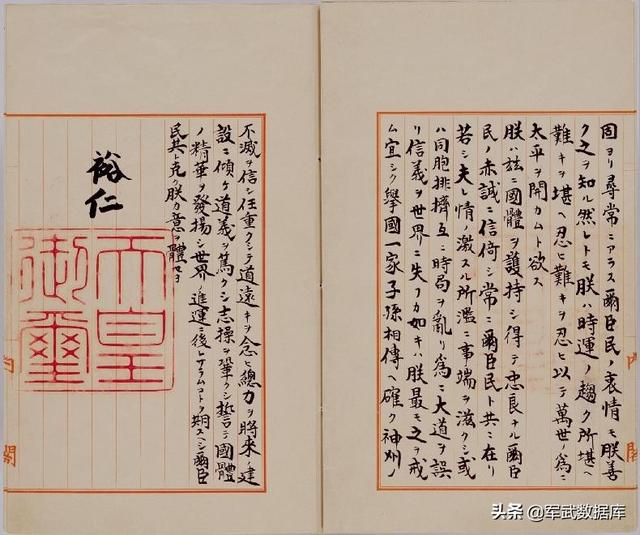 固ヨリ尋常ニアラス爾臣民ノ衷情モ朕善
ク之ヲ知ル然レトモ朕ハ時運ノ趨ク所堪ヘ
難キヲ堪ヘ忍ヒ難キヲ忍ヒ以テ萬世ノ爲ニ
太平ヲ開カムト欲ス
朕ハ茲ニ國體ヲ護持シ得テ忠良ナル爾臣
民ノ赤誠ニ信倚シ常ニ爾臣民ト共ニ在リ
若シ夫レ情ノ激スル所濫ニ事端ヲ滋クシ或
ハ同胞排擠互ニ時局ヲ亂リ爲ニ大道ヲ誤
リ信義ヲ世界ニ失フカ如キハ朕最モ之ヲ戒
ム宜シク擧國一家子孫相傳ヘ確ク神州ノ
不滅ヲ信シ任重クシテ道遠キヲ念ヒ總力ヲ將來ノ建
設ニ傾ケ道義ヲ篤クシ志操ヲ鞏クシ誓テ國體
ノ精華ヲ發揚シ世界ノ進運ニ後レサラムコトヲ期スヘシ爾臣
民其レ克ク朕カ意ヲ體セヨ
裕仁
天皇
御璽
内
閣
内
閣
头条 @军武数据库